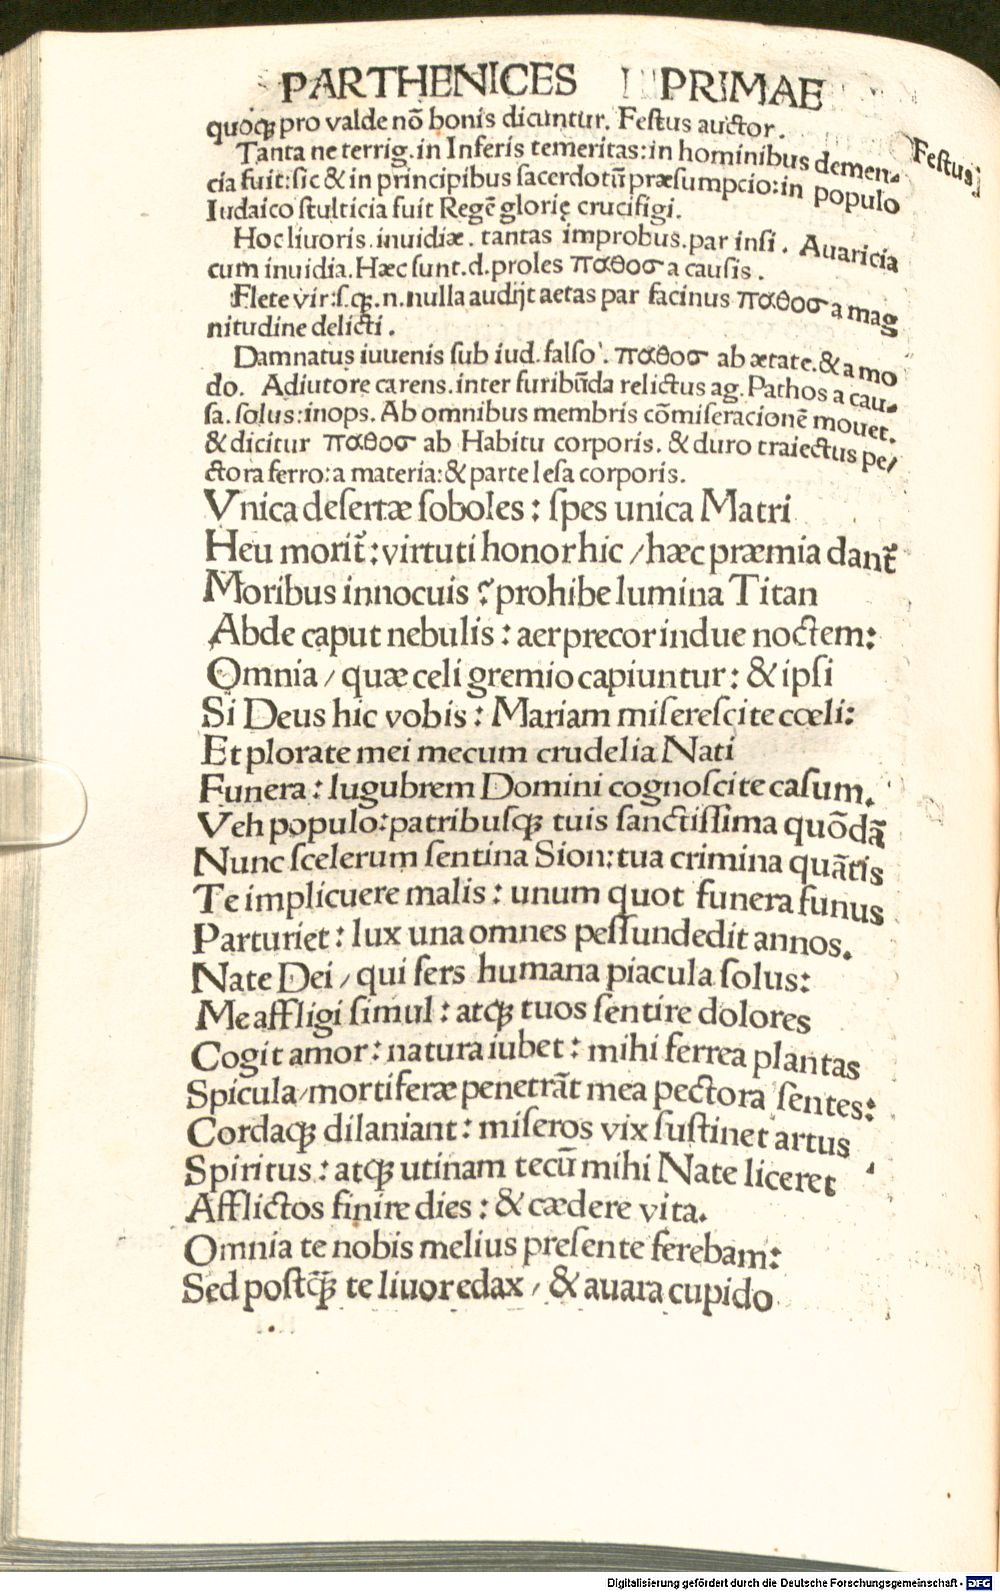 PARTHENICES PRIMAE
quoqꝫ pro valde nō bonis dicuntur. Festus auctor.
Festus
Tanta ne terrig. in Inferis temeritas: in hominibus demen-
cia fuit: sic & in principibus sacerdotū præsumpcio: in populo
Iudaico stulticia fuit Regē glorię crucifigi.
Hoc liuoris. inuidiæ. tantas improbus. par insi. Auaricia
cum inuidia. Hæc sunt. d. proles παθοσ a causis.
Flete vir: s. qꝫ. n. nulla audijt aetas par facinus παθοσ a mag
nitudine delicti.
Damnatus iuuenis sub iud. falso. παθοσ ab ætate. & a mo
do. Adiutore carens. inter furibūda relictus ag. Pathos a cau-
sa. solus: inops. Ab omnibus membris cōmiseracionē mouet.
& dicitur παθοσ ab Habitu corporis. & duro traiectus pe/
ctora ferro: a materia: & parte lesa corporis.
Vnica desertæ soboles: spes unica Matri
Heu morit᷑: virtuti honor hic / hæc præmia dant᷑
Moribus innocuis? prohibe lumina Titan
Abde caput nebulis: aer precor indue noctem:
Omnia / quæ celi gremio capiuntur: & ipsi
Si Deus hic vobis: Mariam miserescite cœli:
Et plorate mei mecum crudelia Nati
Funera: lugubrem Domini cognoscite casum.
Veh populo: patribusqꝫ tuis sanctissima quōdā
Nunc scelerum sentina Sion: tua crimina quātis
Te implicuere malis: unum quot funera funus
Parturiet: lux una omnes pessundedit annos.
Nate Dei / qui fers humana piacula solus:
Me affligi simul: atqꝫ tuos sentire dolores
Cogit amor: natura iubet: mihi ferrea plantas
Spicula / mortiferæ penetrāt mea pectora sentes:
Cordaqꝫ dilaniant: miseros vix sustinet artus
Spiritus: atqꝫ utinam tecū mihi Nate liceret
Afflictos finire dies: & cædere vita.
Omnia te nobis melius presente ferebam:
Sed postqꝫ̄ te liuor edax / & auara cupido
Digitalisierung gefördert durch die Deutsche Forschungsgemeinschaft - DFG